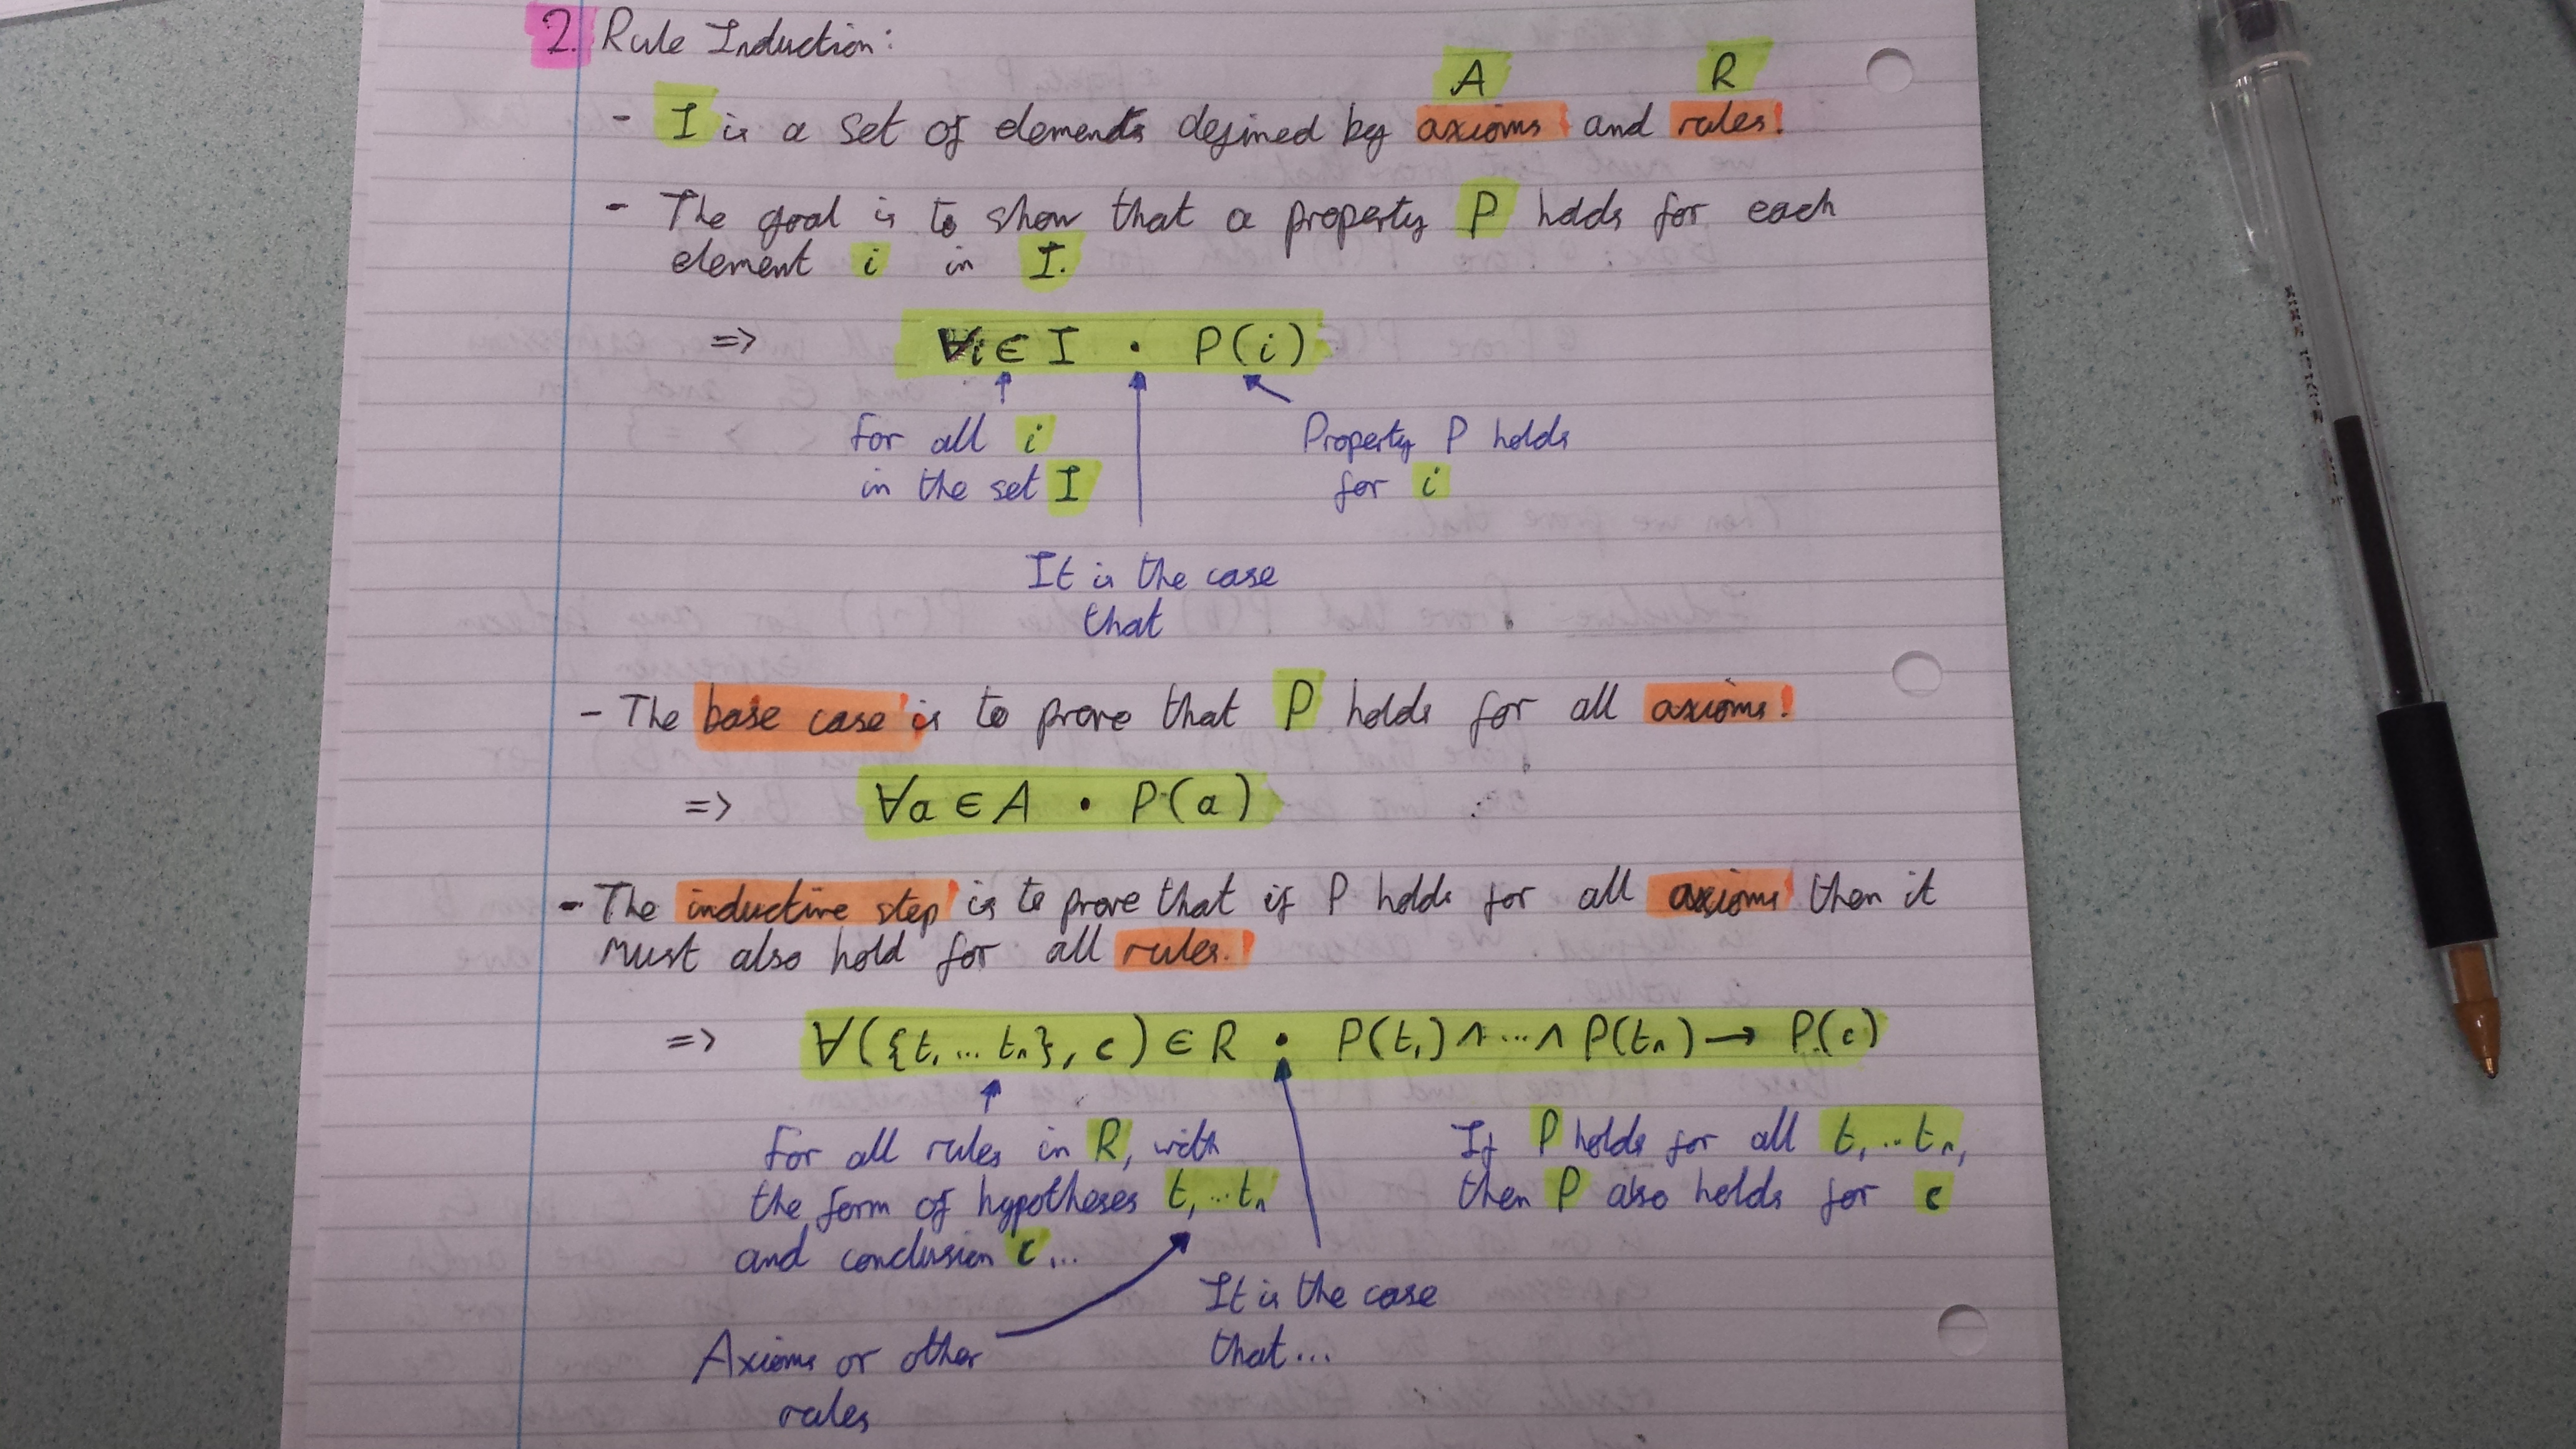 2. Rule Induction:
A R
- I is a set of elements defined by axioms and rules!
- The goal is to show that a property P holds for each
element i in I.
=> ∀i ∈ I • P(i)
for all i
in the set I
Property P holds
for i
It is the case
that
- The base case is to prove that P holds for all axioms!
=> ∀a ∈ A • P(a)
- The inductive step is to prove that if P holds for all axioms then it
must also hold for all rules!
=> ∀({t₁ ... tₙ}, c) ∈ R • P(t₁) ∧ ... ∧ P(tₙ) → P(c)
for all rules in R, with
the form of hypotheses t₁ ... tₙ
and conclusion c ...
If P holds for all t₁ .. tₙ,
then P also holds for c
It is the case
that...
Axioms or other
rules